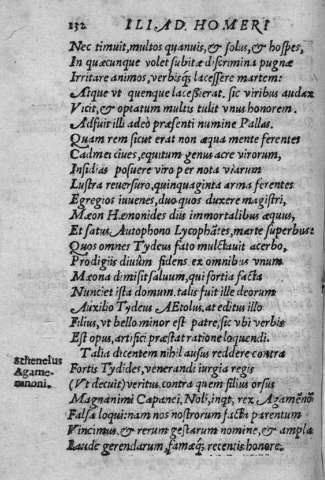 132 ILIAD. HOMERI
Nec timuit, multos quanuis, & solus, & hospes,
In quæcunque volet subitæ discrimina pugnæ
Irritare animos, verbisq; lacessere martem:
Atque vt quenque lacesserat. sic viribus audax
Vicit, & optatum multis tulit vnus honorem.
Adfuit illi adeò præsenti numine Pallas.
Quam rem sicut erat non æqua mente ferentes
Cadmei ciues, equitum genus acre virorum,
Insidias posuere viro per nota viarum
Lustra reuersuro, quinquaginta arma ferentes
Egregios iuuenes, duo quos duxere magistri,
Mæon Hæmonides diis immortalibus æquus,
Et satus Autophono Lycophōtes, marte superbus:
Quos omnes Tydeus fato mulctauit acerbo,
Prodigiis diuûm fidens ex omnibus vnum
Mæona dimisit saluum, qui fortia facta
Nunciet ista domum. talis fuit ille deorum
Auxilio Tydeus AEtolus, at editus illo
Filius, vt bello minor est patre, sic vbi verbis
Est opus, artifici præstat ratione loquendi.
Talia dicentem nihil ausus reddere contra
Sthenelus
Agame-
mnoni.
Fortis Tydides, venerandi iurgia regis
(Vt decuit) veritus. contra quem filius orsus
Magnanimi Capanei, Noli, inqt, rex Agamēnō
Falsa loqui: nam nos nostrorum facta parentum
Vincimus, & rerum gestarum nomine, & ampla
Laude gerendarum, famæq; recentis honore.